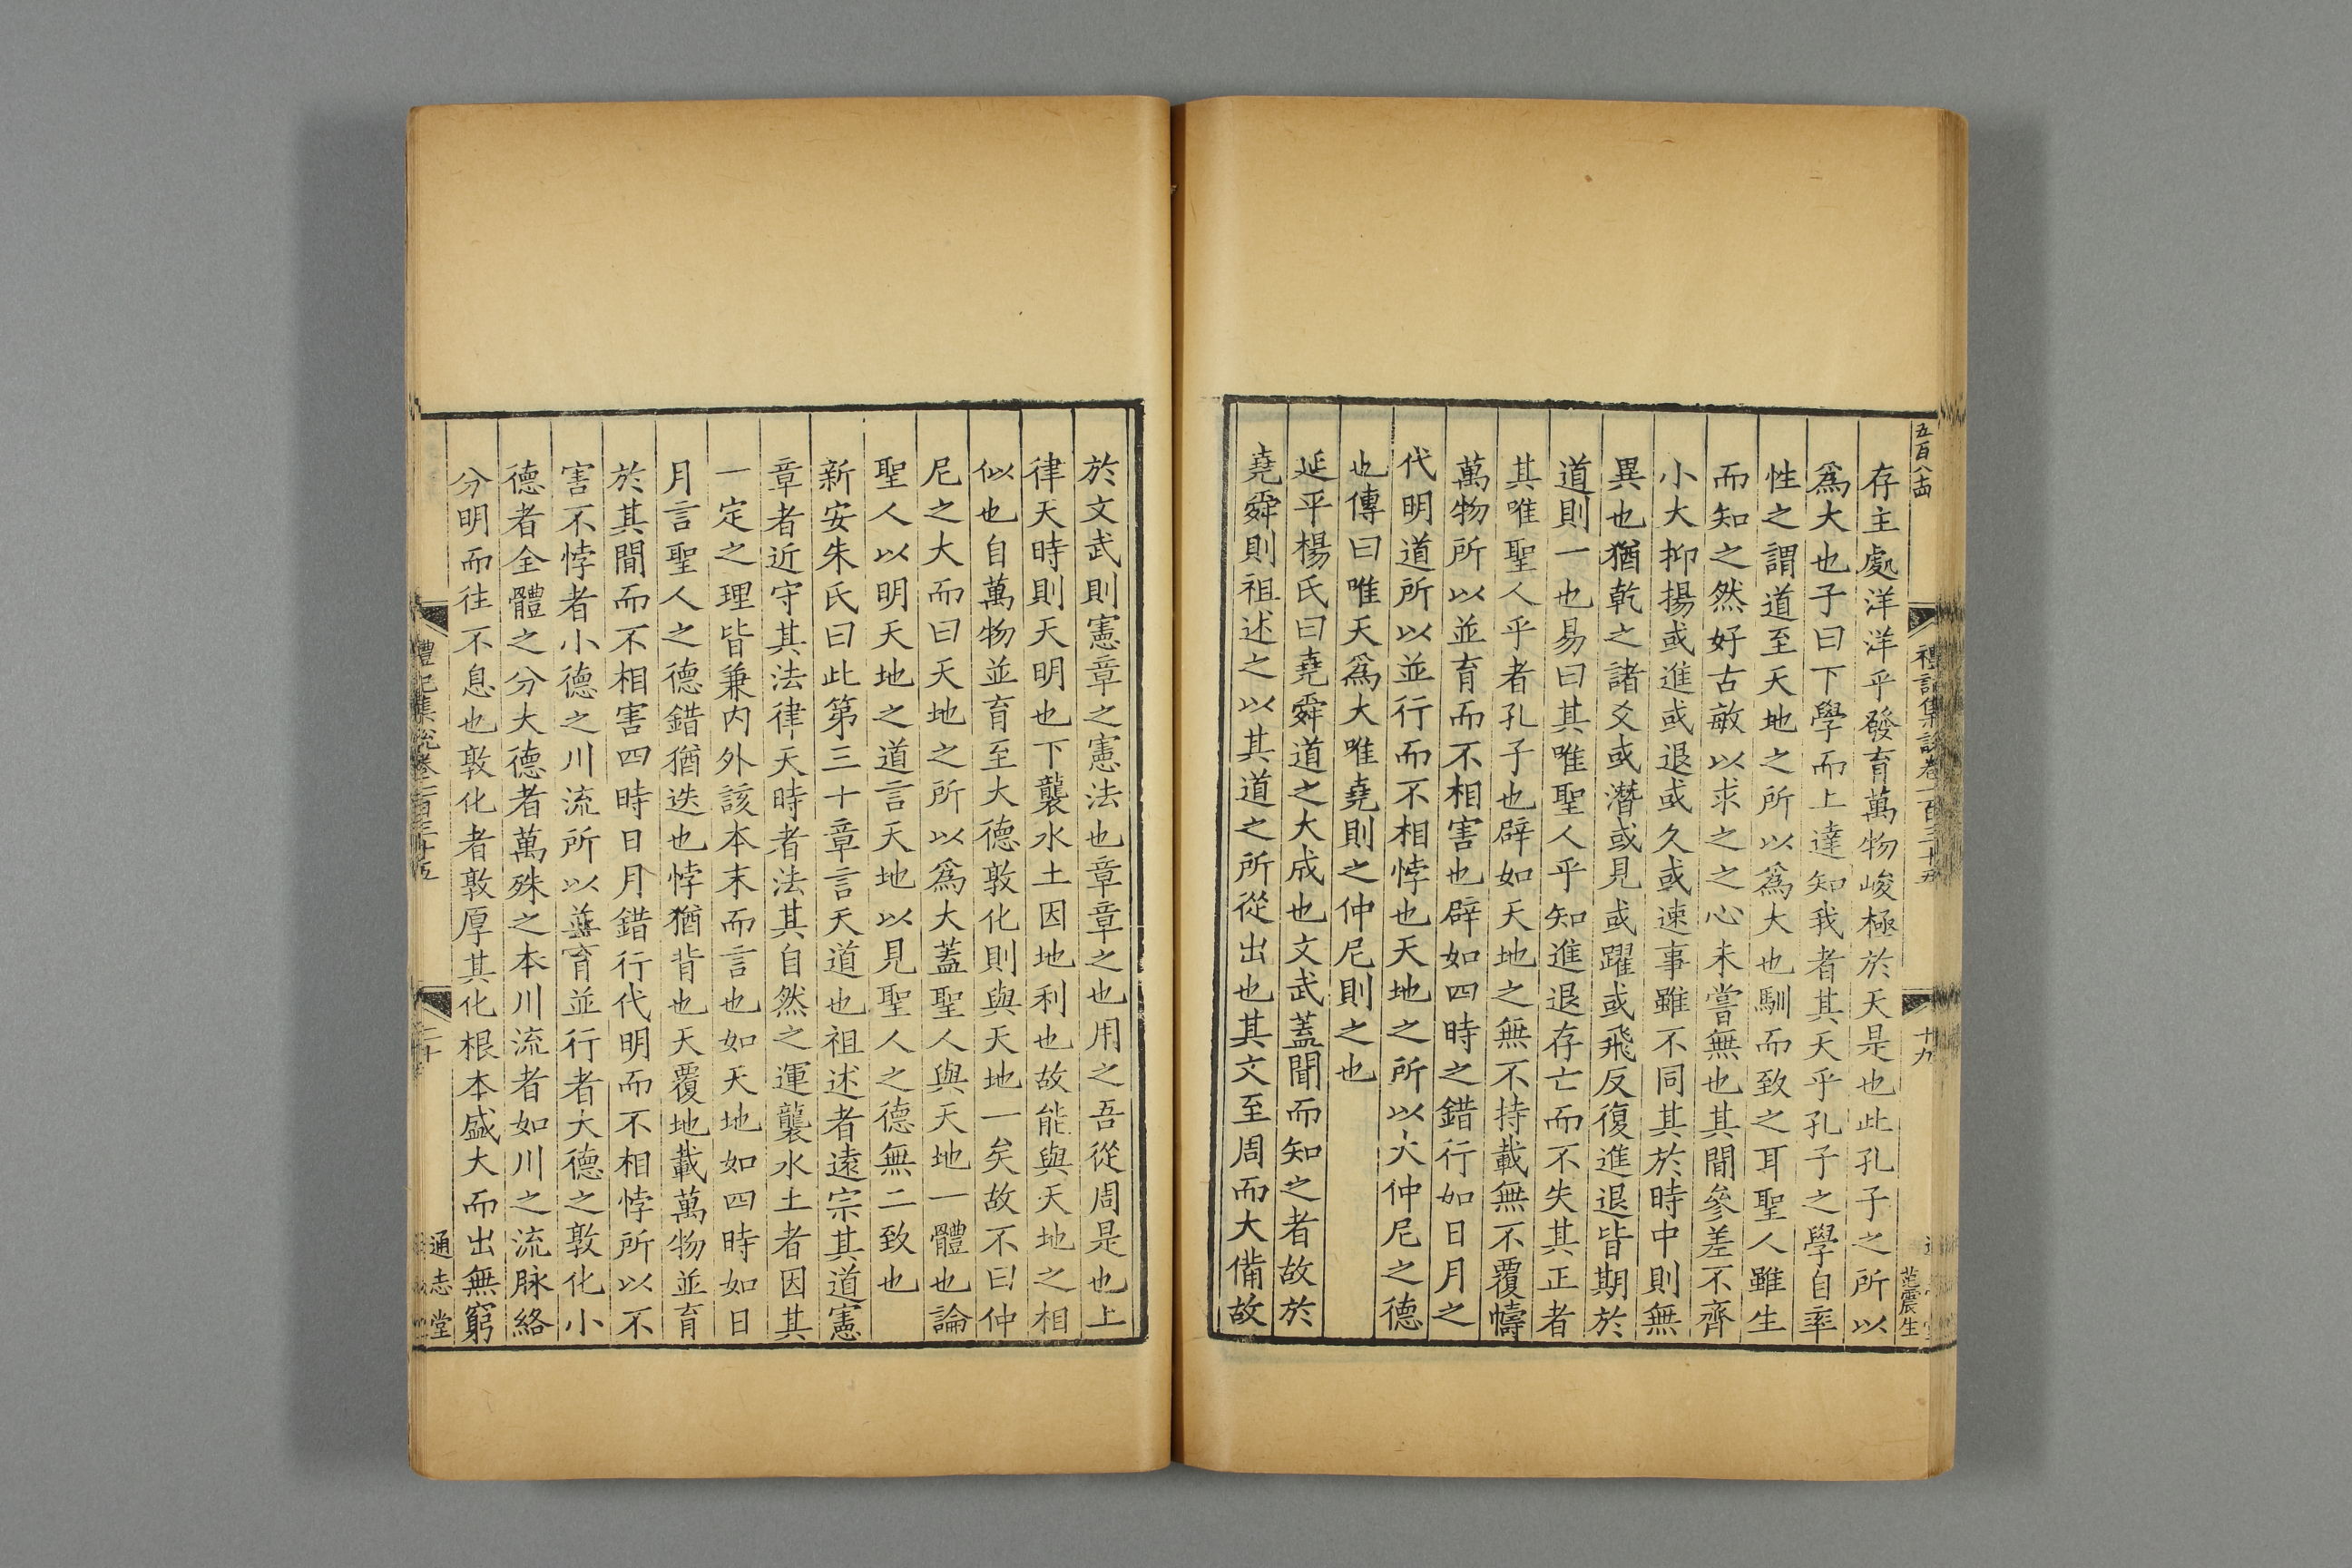 五百八十四
禮記集說卷一百三十五
十九
范震生
存主處洋洋乎發育萬物峻極於天是也此孔子之所以
爲大也子曰下學而上達知我者其天乎孔子之學自率
性之謂道至天地之所以爲大也馴而致之耳聖人雖生
而知之然好古敏以求之之心未嘗無也其間參差不齊
小大抑揚或進或退或久或速事雖不同其於時中則無
異也猶乾之諸爻或潛或見或躍或飛反復進退皆期於
道則一也易曰其唯聖人乎知進退存亡而不失其正者
其唯聖人乎者孔子也辟如天地之無不持載無不覆幬
萬物所以並育而不相害也辟如四時之錯行如日月之
代明道所以並行而不相悖也天地之所以大仲尼之德
也傳曰唯天爲大唯堯則之仲尼則之也
延平楊氏曰堯舜道之大成也文武蓋聞而知之者故於
堯舜則祖述之以其道之所從出也其文至周而大備故
於文武則憲章之憲法也章章之也用之吾從周是也上
律天時則天明也下襲水土因地利也故能與天地之相
似也自萬物並育至大德敦化則與天地一矣故不曰仲
尼之大而曰天地之所以爲大蓋聖人與天地一體也論
聖人以明天地之道言天地以見聖人之德無二致也
新安朱氏曰此第三十章言天道也祖述者遠宗其道憲
章者近守其法律天時者法其自然之運襲水土者因其
一定之理皆兼内外該本末而言也如天地如四時如日
月言聖人之德錯猶迭也悖猶背也天覆地載萬物並育
於其間而不相害四時日月錯行代明而不相悖所以不
害不悖者小德之川流所以並育並行者大德之敦化小
德者全體之分大德者萬殊之本川流者如川之流脉絡
分明而往不息也敦化者敦厚其化根本盛大而出無窮
禮記集說卷一百三十五
二十
通志堂